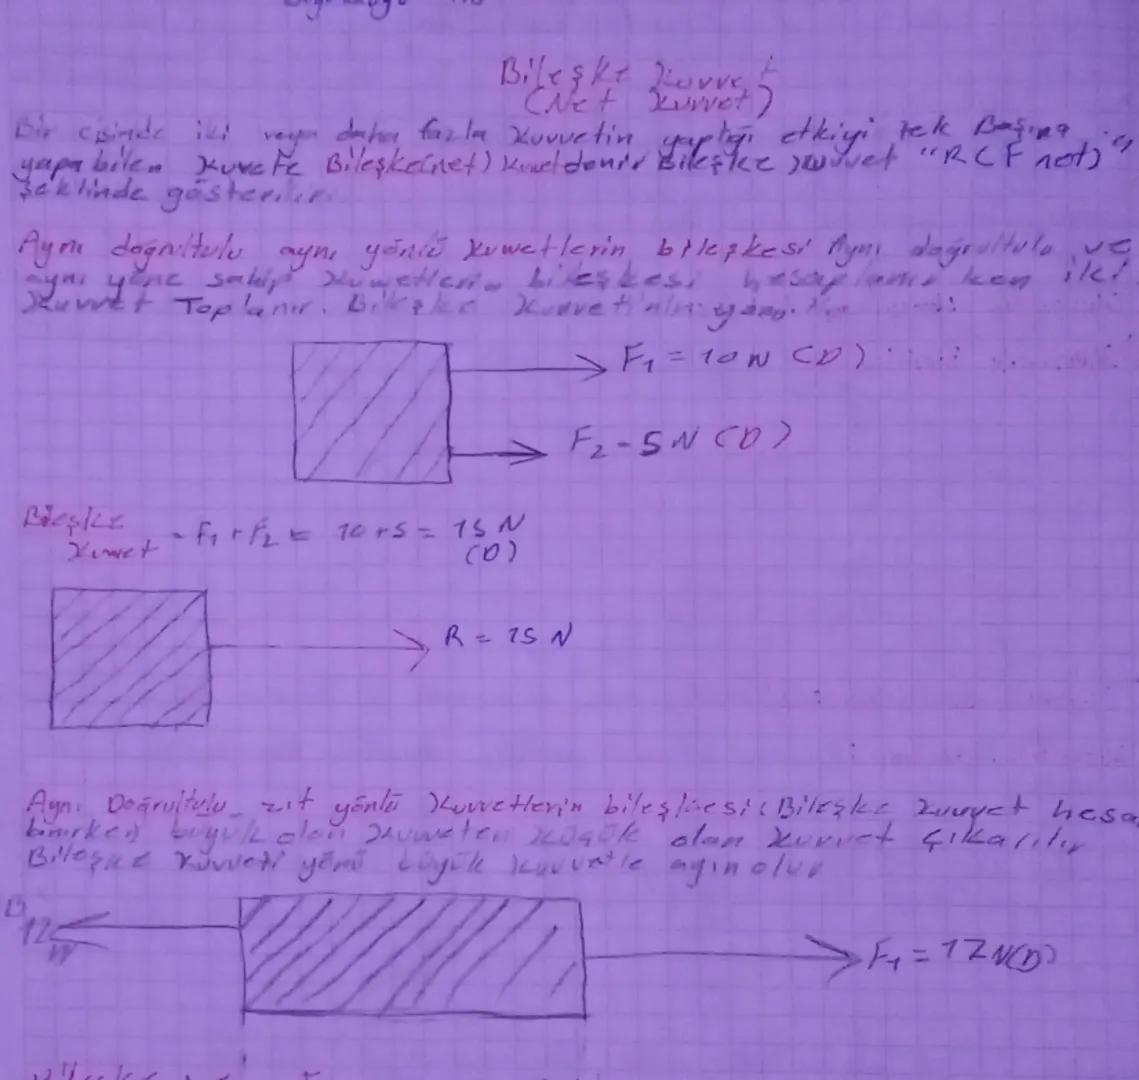 Bileşke Kuvvet
(Net Kuvvet)
Bir cisimde iki veya daha fazla Kuvvetin yaptığı etkiyi tek Başına
yapa bilen Kuvete Bileşke(net) Kuvet denir Bileşke Kuvvet "R(F net)"
Şeklinde gösterilir.
Aynı doğrultulu aynı yönlü Kuvvetlerin bileşkesi Aynı doğrultulu ve
aynı yöne sahip Kuvvetlerin bileşkesi hesaplanır ken iki
Kuvvet Toplanır. Bileşke Kuvvetinin yönü
F1 = 10 N (D)
F2 - 5 N (D)
Bileşke
Kuvvet = F1 + F2 = 10 + 5 = 15 N
(D)
R = 15 N
Aynı Doğrultulu zıt yönlü Kuvvetlerin bileşkesi: Bileşke Kuvvet hesa
büyük olan Kuvveten Küçük olan Kuvvet Çıkarılır
Bileşke Kuvveti yönü büyük Kuvvetle aynı olur
B
12
N
F1 = 12 N(D)